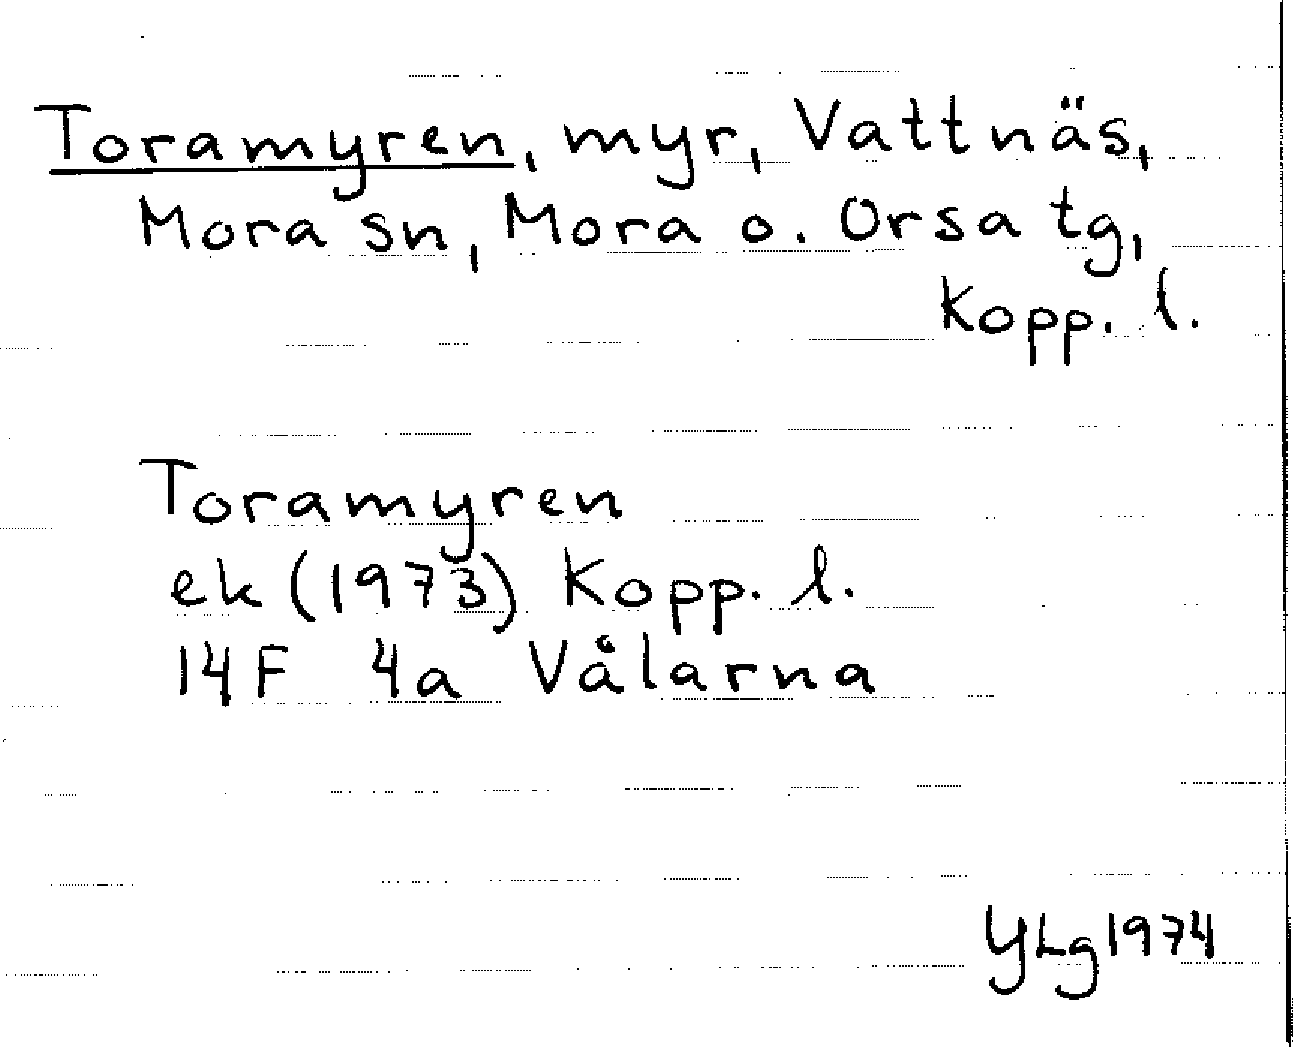 Toramyren, myr, Vattnäs,
Mora sn, Mora o. Orsa tg,
Kopp. l.
Toramyren
ek (1973) Kopp. l.
14F 4a Vålarna
YLg 1974